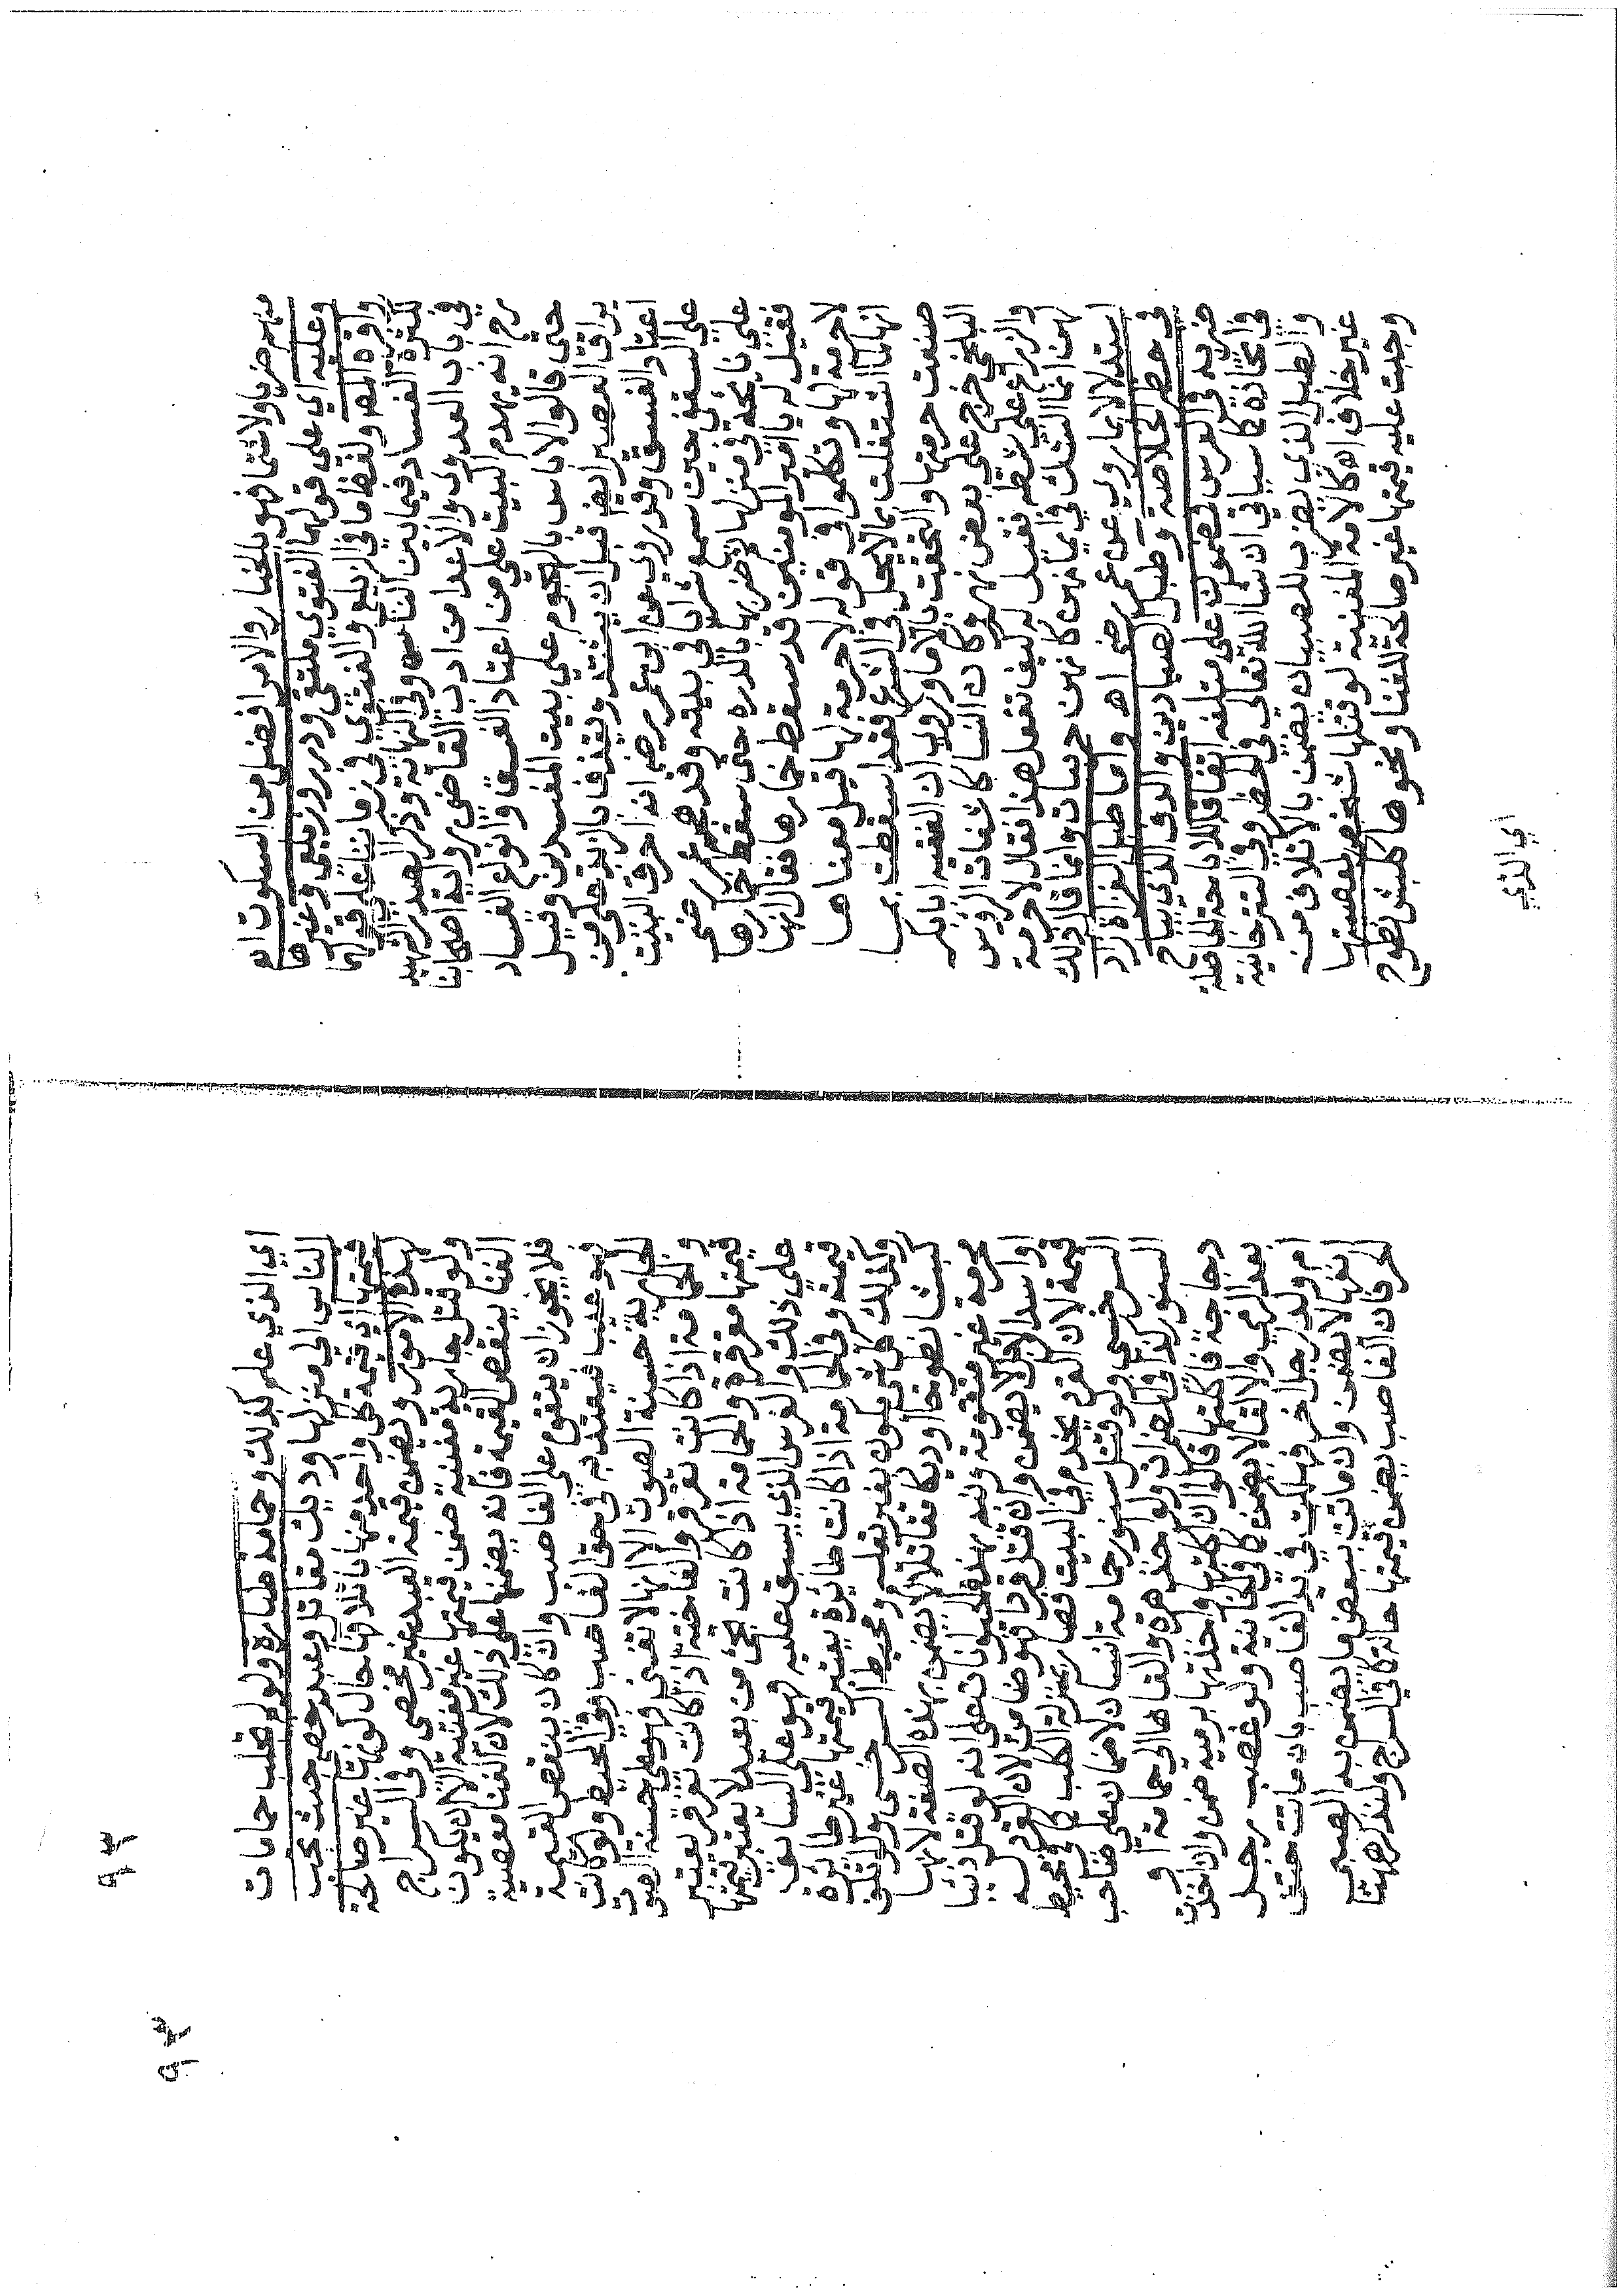 منهم ضربا ولا شتما فهو بالخيار والامر افضل من السكوت اه
وعليه اي على قولهما الفتوى ملتقى ودرر وزيلعي وغيرها
واقره المص ولفظ ما في الزيلعي والفتوى في زماننا على قولهما
لكثرة الفساد فيما بين الناس وفي النهاية وذكر الصدر الشهيد
في باب العدوى والاعدا من ادب القاضي رواية اصحابنا
رح انه يهدم البيت على من اعتاد الفسق وانواع الفساد
حتى قالوا لا باس بالهجوم على بيت المفسدين وقيل
يراق العصير ايضا قبل ان يشتد ويقذف بالزبد على من
اعتاد الفسق وقد روي عن ابن عمر رضه انه احرق البيت
على السقفي حين سمع شرابا في بيته وقد هجم عمر رضي
على نايحة في منزلها فضربها بالدره حتى سقط خمارها
فقيل له يا امير المومنين قد سقط خمارها فقال انها
لا حرمة لها وتكلموا في قوله لا حرمة لها قيل معناها
انها لما اشتغلت بما لا يحل في الشرع فقد اسقطت بما
صنعت حرمتها والتحقت بالاما وروي ان الفقيه ابا بكر
البلخي خرج على بعض نهر وكان النسا كاشفات الروس
والذراع على شطه فقيل له كيف تفعل هذا فقال لا حرمة
لهن انما الشك في ايمانهن كانهن حربيات وانما قال ذلك
استدلالا بما روي عن عمر رضي اه واما طبل الغزاة زاد
في حظر الخلاصة وطبل الصيادين والدف الذي يباح
ضربه في العرس فمضمون على متلفه اتفاقا للاباحة الحاصلة
في اتخاذه كما سياتي ان شا الله تعالى في الحظر وفي التترخانية
والطبل الذي يضرب للصبيان يضمن بالاتلاف من
غير خلاف اه كالامة المغنية لو قتلها شخص لمعصيتها
وجبت عليه قيمتها غير صالحة للغنا ونحوها ككبش نطوح
اي الذي
اي الذي علم كذلك وحمامة طيارة ولو لم تجلب حمامات
الناس الى منزلها وديك مقاتل وعبد خصي حيث تجب
قيمتها اي قيمة كل واحد منها باتلافها حال كونها غير صالحة
لهذه الامور ويضمن قيمة العبد غير مخصي وفي السراج
ولو قتل جارية مغنية ضمن قيمتها غير مغنية الا ان يكون
الغنا ينقص القيمة فانه يضمنها على ذلك لان الغنا معصية
فلا يجوز ان يتقوم على الغاصب وان كان ينقص القيمة
فهو عيب فيعتد به في حق الغاصب وفي المحيط ولو كانت
الجارية حسنة الصوت الا انها لا تغني فهو على حسنة الصوت
والحمامة اذا كانت تقرقر والفاختة اذا كانت تقرقر يعتبر
قيمتها مقرقرة والحمامة اذا كانت تجئ من بعيد لا يعتبر قيمتها
على ذلك والفرس الذي يسبق عليه فهو على السابق
قيمته وفي الحمامة اذا كانت طائرة يعتبر قيمتها غير طائرة
وكذلك كل شي يكون بغير تعليم ومحيط السرخسي ولو اتلف
كبشا نطوحا او ديكا مقاتلا لا يضمن بهذه الصفة لانها
محرمة غير متقومة ونبه بهذه الحيوانات على انه لو قتل ذئبا
او اسدا لرجل لا يضمن وان قتل قردا فهو ضامن لان القرد له
قيمة لان القرد يخدم في البيت فصار بمنزلة الكلب كما في محيط
السرخسي ولو قتل سنور حمامة انسان لا ضمان على صاحب
السنور كذا في الضمانات ولو اخذ هرة والقاها الى حمامة او
دجاجة فاكلتها قالوا ان اكلتها واخذتها برميه ضمن وان اخذت
بعد الرمي والالقا لا يضمن كما في الخانية ولو غصب رجل
ام ولد لرجل اخر فهلكت في يد الغاصب بان ماتت حتف
انفها لا يضمن وان ماتت بسبب بعض ما يضمن به الصبي
الحر فان الغاصب يضمن قيمتها حالة كما في السراج ولنذكر هنا
٩٣
٩٣